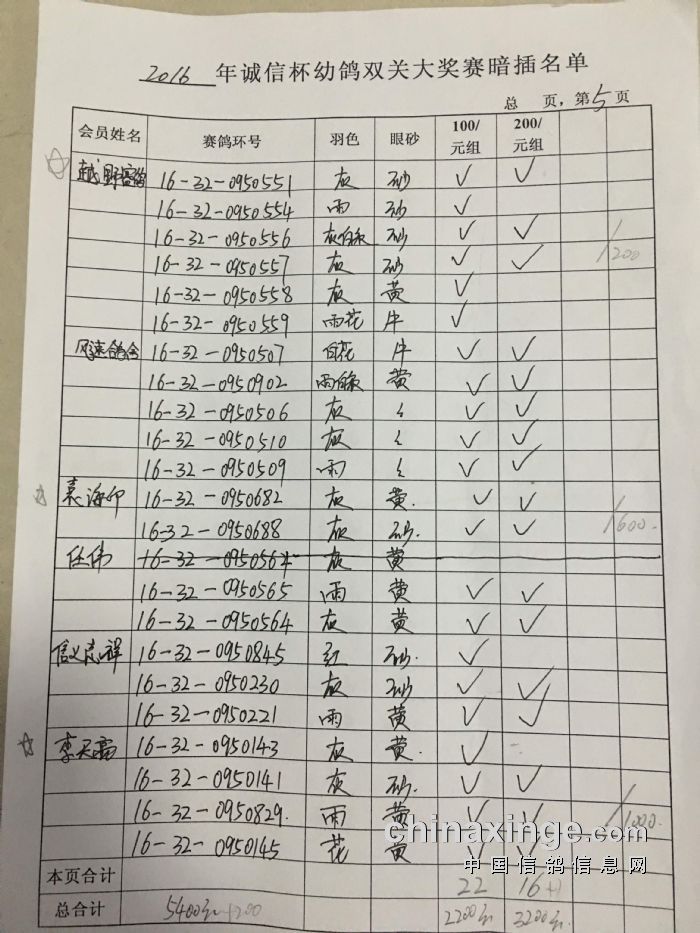 2016 年诚信杯幼鸽双关大奖赛暗插名单
总 页，第 5 页
会员姓名 赛鸽环号 羽色 眼砂 100/元组 200/元组
越野赛鸽 16-32-0950551 灰 砂 ✓ ✓
16-32-0950554 雨 砂 ✓
16-32-0950556 灰白条 砂 ✓ ✓ /200
16-32-0950557 灰 砂 ✓ ✓
16-32-0950558 灰 黄 ✓
16-32-0950559 雨花 牛 ✓
风速鸽舍 16-32-0950507 白花 牛 ✓ ✓
16-32-0950902 雨白条 黄 ✓ ✓
16-32-0950506 灰 〻 ✓ ✓
16-32-0950510 灰 〻 ✓ ✓
16-32-0950509 雨 〻 ✓ ✓
袁海印 16-32-0950682 灰 黄. ✓ ✓
16-32-0950688 灰 砂. ✓ ✓ /600.
任伟 16-32-0950564 灰 黄
16-32-0950565 雨 黄 ✓ ✓
16-32-0950564 灰 黄 ✓ ✓
信义志祥 16-32-0950845 红 砂. ✓
16-32-0950230 灰 砂 ✓ ✓
16-32-0950221 雨 黄 ✓ ✓
李天高 16-32-0950143 灰 黄. ✓
16-32-0950141 灰 砂. ✓ ✓
16-32-0950829. 雨 黄 ✓ ✓ /1000.
16-32-0950145 花 黄 ✓ ✓
本页合计 22 16+1
总合计 5400元+200 2200元 3200元
chinaxinge.com
中国信鸽信息网